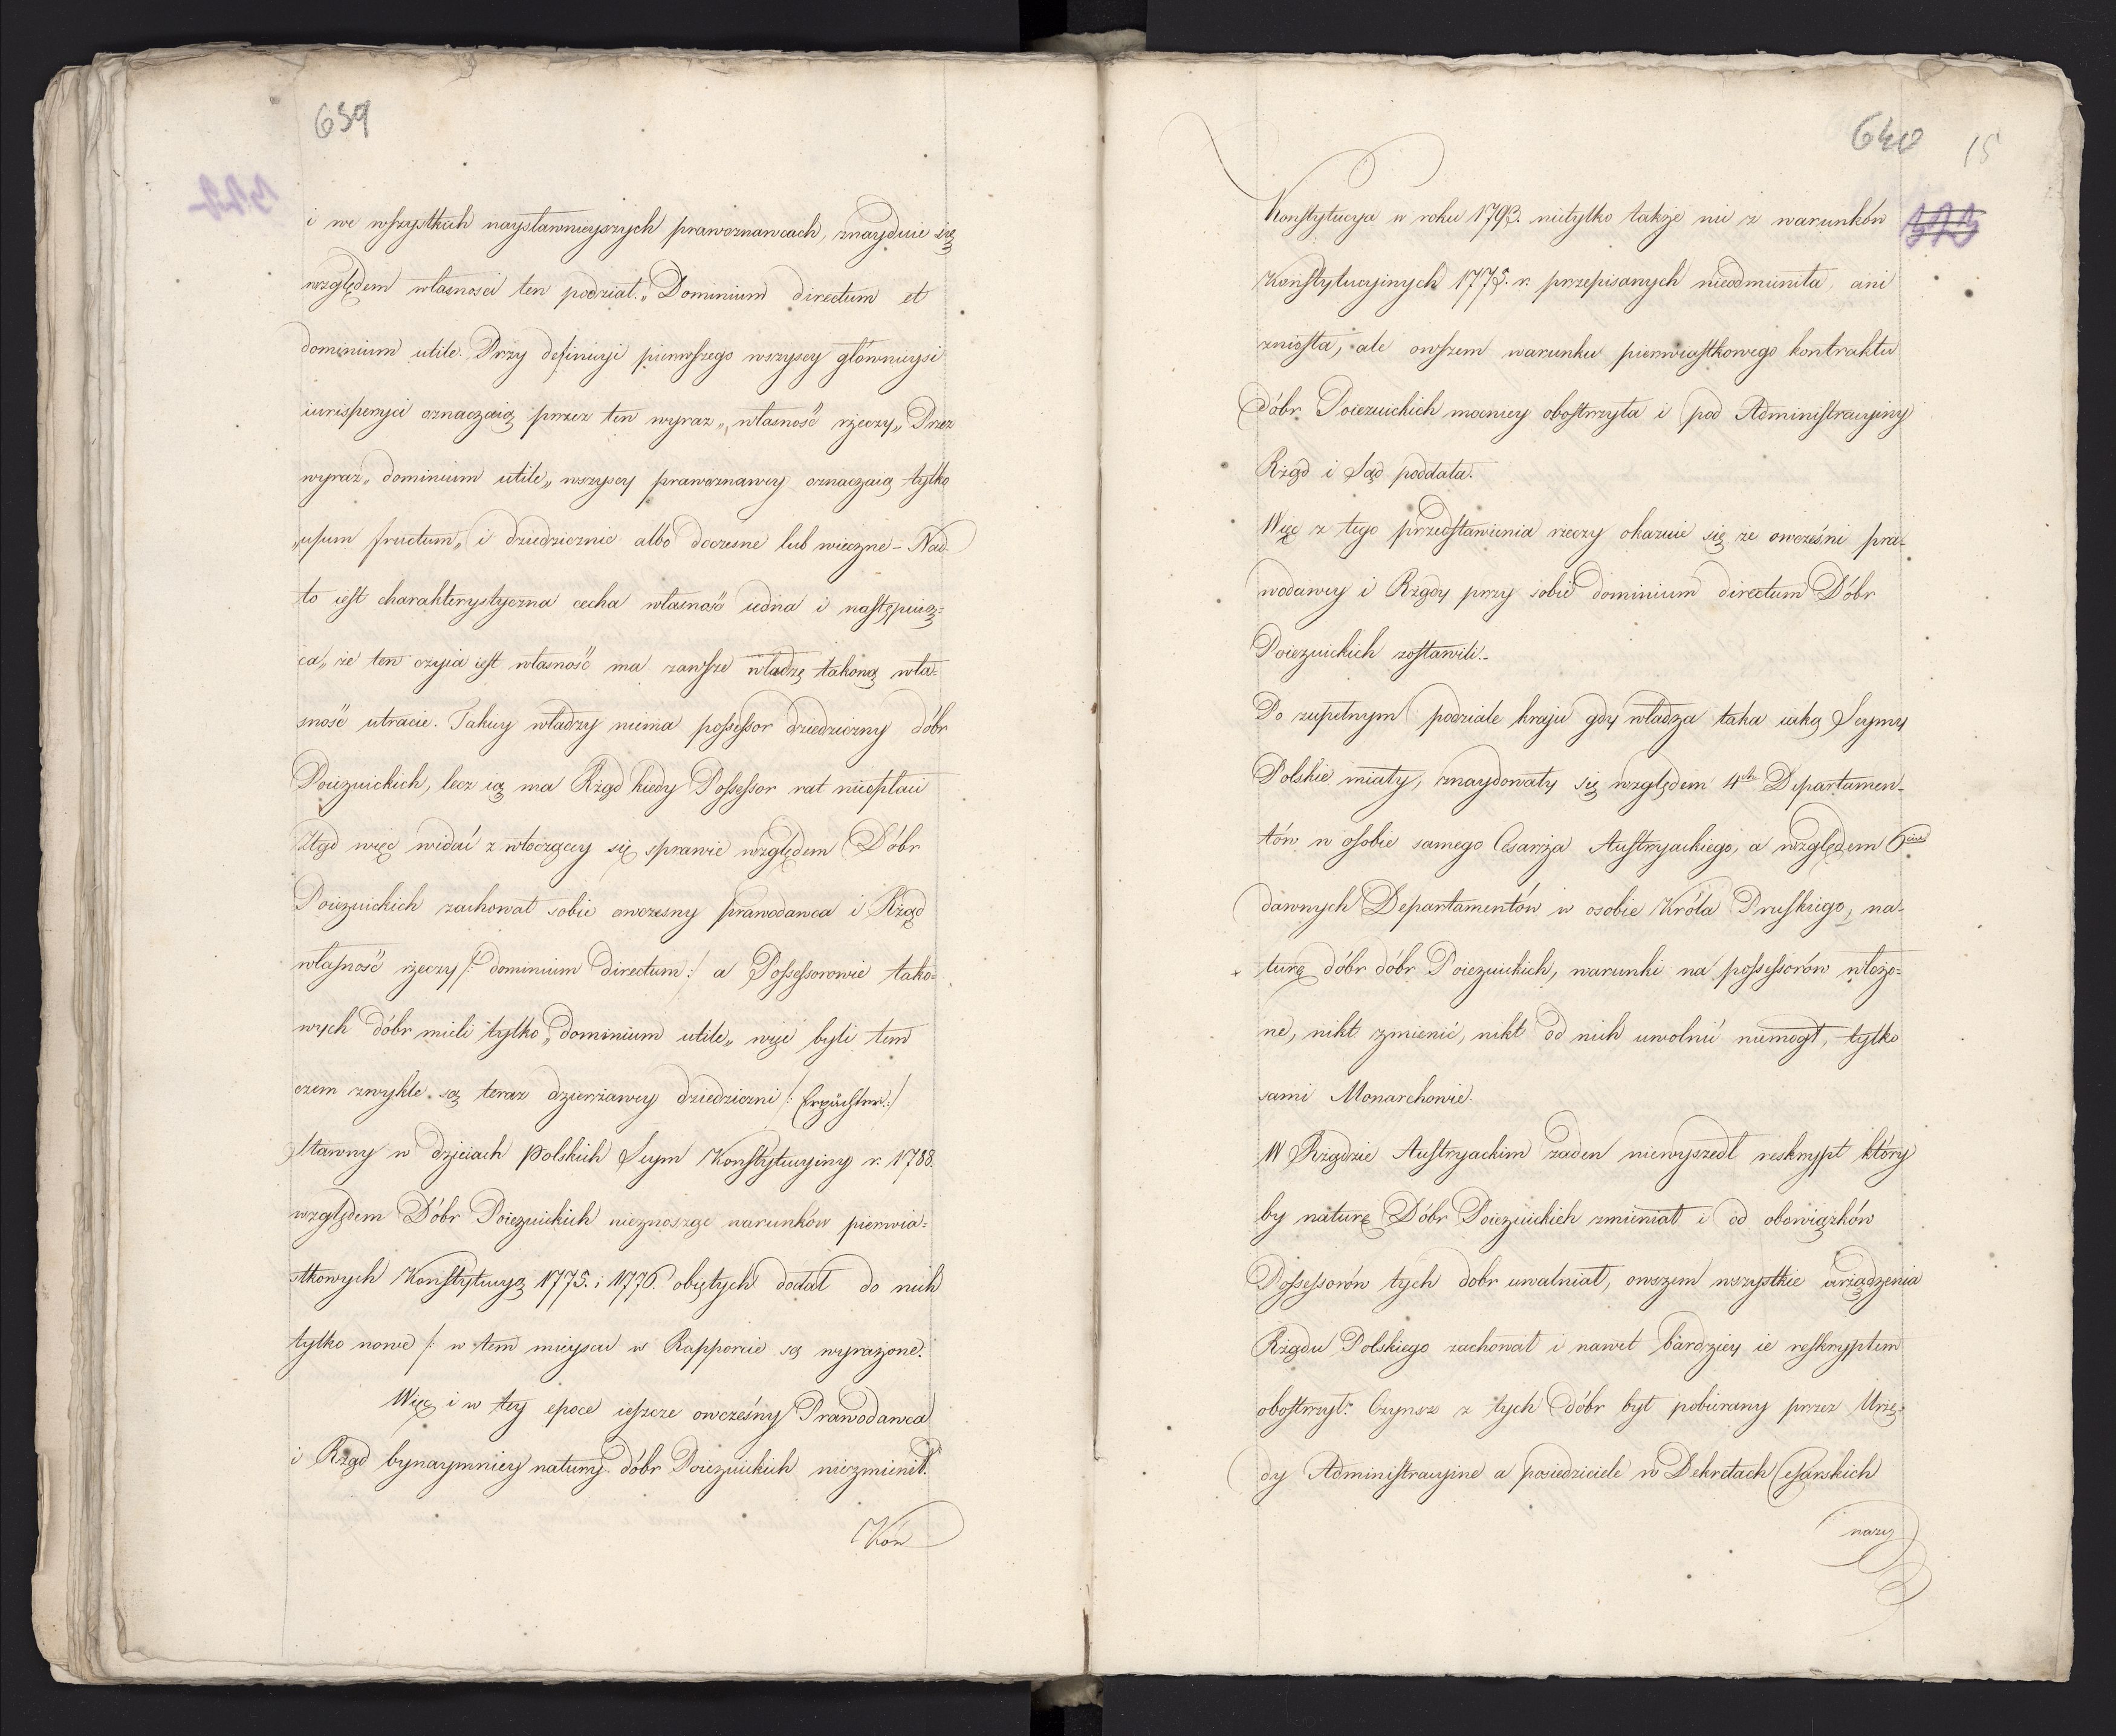 639
i we wszystkich naysławnieyszych prawoznawcach, znayduie się
względem własności ten podział „Dominium directum et
dominium utile. Przy definicyi pierwszego wszyscy głównieysi
iurisperyci oznaczaią przez ten wyraz „własność rzeczy„ Przez
wyraz „dominium utile„ wszyscy prawoznawcy oznaczaią tylko
„usum fructum„ i dziedzicznie albo doczesne lub wieczne – Nad
to iest charakterystyczna cecha własność iedna i następuią-
ca„ że ten czyia iest własność ma zawsze władzę takową wła-
sność utracić. Takiey władzy niema possessor dziedziczny dóbr
Poiezuickich, lecz ią ma Rząd kiedy Possessor rat nieopłaci
Ztąd więc widać z włoczącey się sprawie względem Dóbr
Poiezuickich zachował sobie owczesny prawodawca i Rząd
własność rzeczy /: dominium directum :/ a Possessorowie tako-
wych dóbr mieli tylko „dominium utile„ więc byli tem
czem zwykle są teraz dzierżawcy dziedziczni /: Erpächter :/
Sławny w dzieiach Polskich Seym Konstytucyiny r. 1788.
względem Dóbr Poiezuickich nieznosząc warunków pierwia-
stkowych Konstytucyą 1775. i 1776. obiętych dodał do nich
tylko nowe /: w tem mieyscu w Rapporcie są wyrażone.
Więc i w tey epoce ieszcze owcześny Prawodawca
i Rząd bynaymniey natury dóbr Poiezuickich niezmienił.
Kon
640
15
Konstytucya w roku 1793. nietylko także nic z warunków
Konstytucyinych 1775. r. przepisanych nieodmieniła, ani
zniosła, ale owszem warunku pierwiastkowego kontraktu
dóbr Poiezuickich mocniey obostrzyła i pod Administracyiny
Rząd i Sąd poddała.
Więc z tego przedstawienia rzeczy okazuie się że owcześni pra-
wodawcy i Rządy przy sobie dominium directum Dóbr
Poiezuickich zostawili.–
Po zupełnym podziale kraju gdy władza taka iaką Seymy
Polskie miały, znaydowały się względem 4ch Departamen-
tów w osobie samego Cesarza Austryackiego, a względem 6ciu
dawnych Departamentów w osobie Króla Pruskiego, na-
turę dóbr dóbr Poiezuickich, warunki na possessorów włożo-
ne, nikt zmienić, nikt od nich uwolnić niemógł, tylko
sami Monarchowie.
W Rządzie Austryackim żaden niewyszedł reskrypt który
by naturę Dóbr Poiezuickich zmieniał i od obowiązków
Possessorów tych dobr uwalniał, owszem wszystkie urządzenia
Rządu Polskiego zachował i nawet bardziey ie reskryptem
obostrzył. Czynsz z tych dóbr był pobierany przez Urzę-
dy Administracyine a posiedziciele w Dekretach Cesarskich
nazy